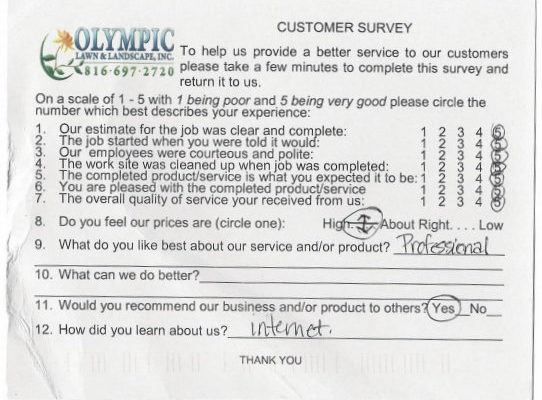 OLYMPIC
LAWN & LANDSCAPE, INC.
816-697-2720
CUSTOMER SURVEY
To help us provide a better service to our customers
please take a few minutes to complete this survey and
return it to us.
On a scale of 1 - 5 with 1 being poor and 5 being very good please circle the
number which best describes your experience:
1. Our estimate for the job was clear and complete: 1 2 3 4 5
2. The job started when you were told it would: 1 2 3 4 5
3. Our employees were courteous and polite: 1 2 3 4 5
4. The work site was cleaned up when job was completed: 1 2 3 4 5
5. The completed product/service is what you expected it to be: 1 2 3 4 5
6. You are pleased with the completed product/service 1 2 3 4 5
7. The overall quality of service your received from us: 1 2 3 4 5
8. Do you feel our prices are (circle one): High About Right.... Low
9. What do you like best about our service and/or product? Professional
10. What can we do better?
11. Would you recommend our business and/or product to others? Yes No
12. How did you learn about us? internet.
THANK YOU